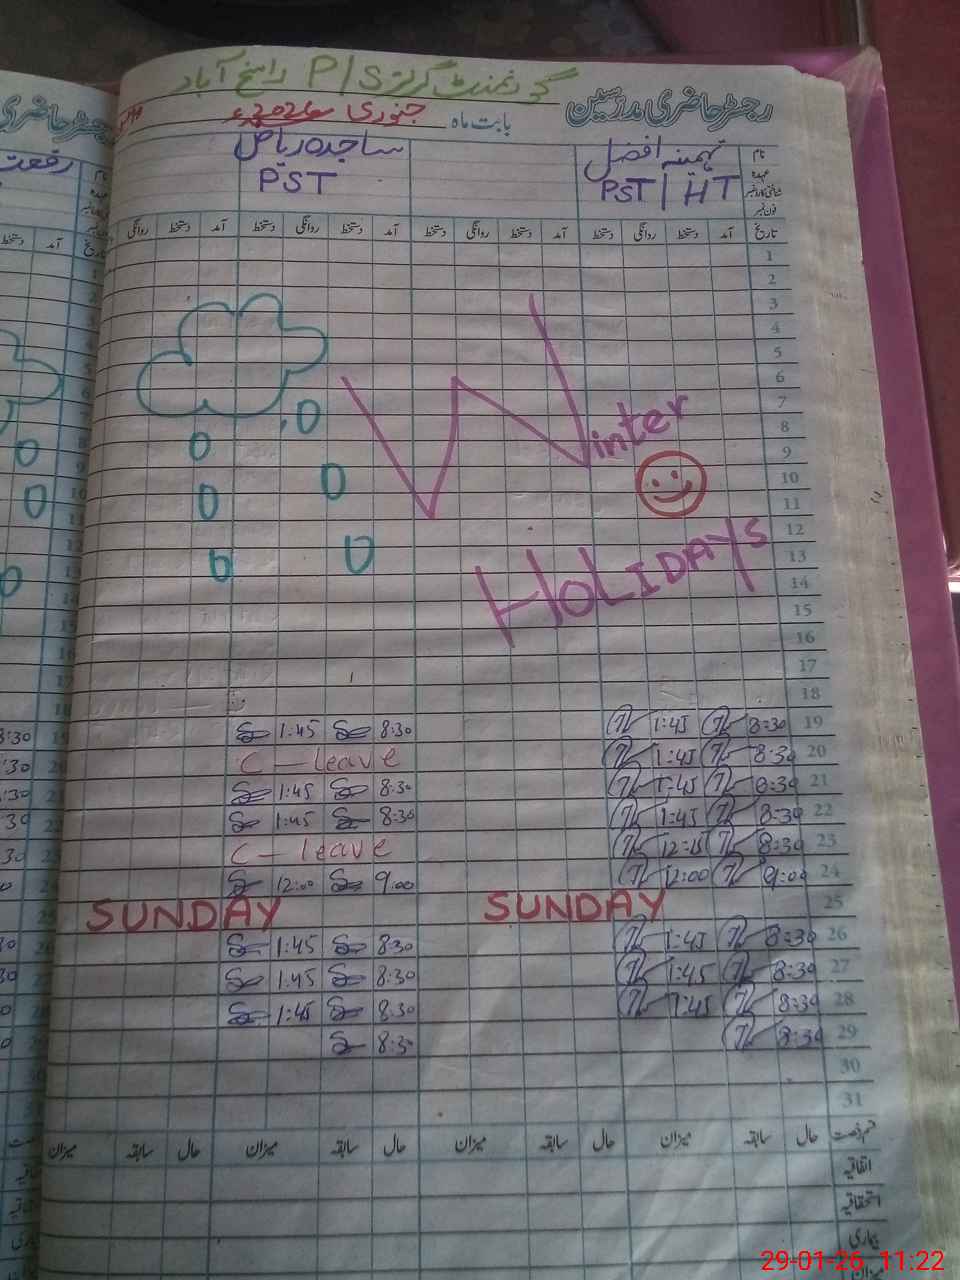 گورنمنٹ گرلز P/S راسخ آباد
رجسٹر حاضری مدرسین بابت ماہ جنوری 2026ء
نام تہمینہ افضل ساجدہ ریاض
عہدہ PST / HT PST
شناختی کارڈ نمبر
فون نمبر
تاریخ آمد دستخط روانگی دستخط آمد دستخط روانگی دستخط آمد دستخط روانگی دستخط آمد دستخط روانگی
1
2
3
4
5
6
7
8
9
10
11
12
13
14
15
16
17
18
Winter
HOLIDAYS
19 8:30 1:45 8:30 1:45
20 8:30 1:45 C - leave
21 8:30 1:45 8:30 1:45
22 8:30 1:45 8:30 1:45
23 8:30 12:15 C - leave
24 9:00 12:00 9:00 12:00
25 SUNDAY SUNDAY
26 8:30 1:45 8:30 1:45
27 8:30 1:45 8:30 1:45
28 8:30 1:45 8:30 1:45
29 8:30 8:30
30
31
قسم رخصت حال سابقہ میزان حال سابقہ میزان حال سابقہ میزان حال سابقہ میزان
اتفاقیہ
استحقاقیہ
بیماری
میزان
رجسٹر حاضری
رفعت
29-01-26 11:22